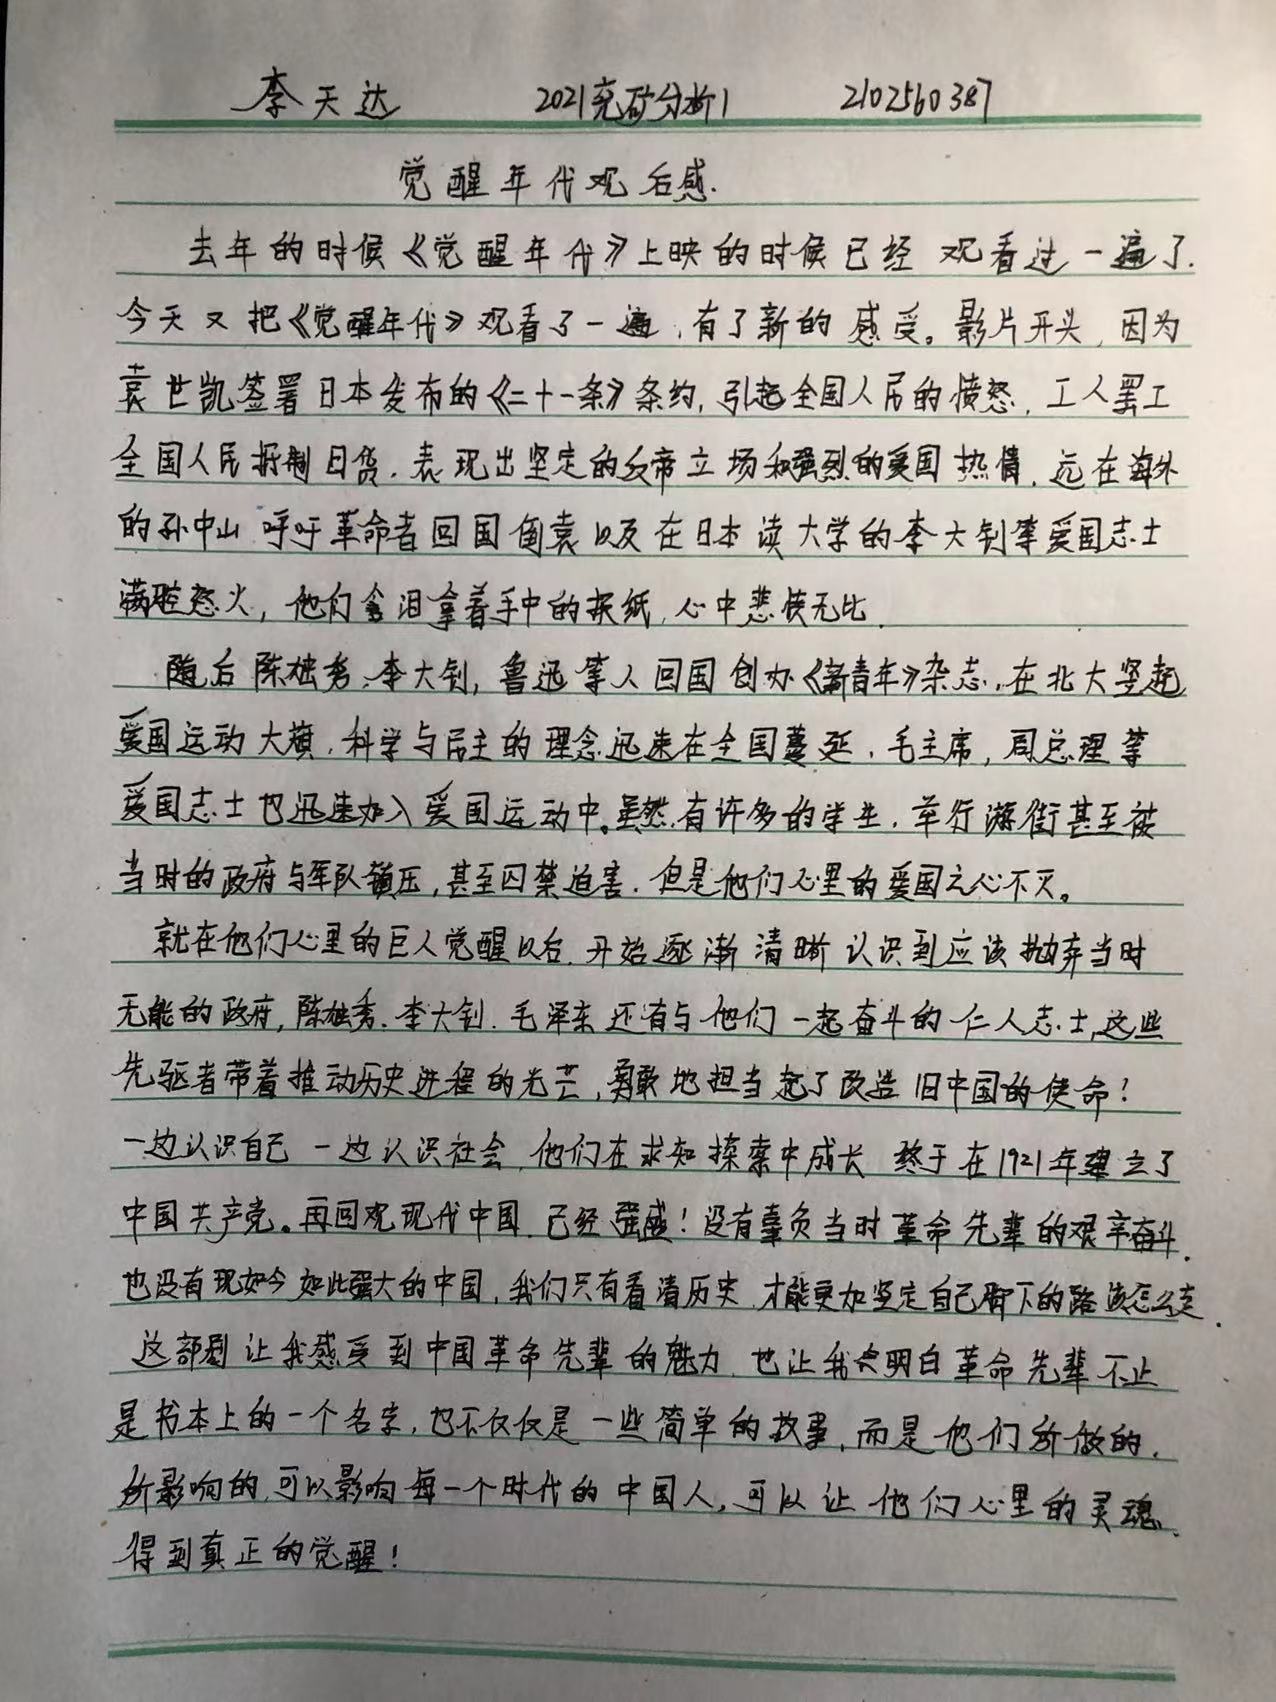 李天达 2021兖矿分析1 2102560387
觉醒年代观后感.
去年的时候《觉醒年代》上映的时候已经观看过一遍了.
今天又把《觉醒年代》观看了一遍,有了新的感受。影片开头,因为
袁世凯签署日本发布的《二十一条》条约,引起全国人民的愤怒,工人罢工
全国人民抵制日货.表现出坚定的反帝立场和强烈的爱国热情,远在海外
的孙中山呼吁革命者回国倒袁以及在日本读大学的李大钊等爱国志士
满腔怒火,他们含泪拿着手中的报纸,心中悲愤无比.
随后陈独秀、李大钊,鲁迅等人回国创办《新青年》杂志,在北大竖起
爱国运动大旗,科学与民主的理念迅速在全国蔓延.毛主席,周总理等
爱国志士也迅速加入爱国运动中。虽然有许多的学生,举行游街甚至被
当时的政府与军队镇压,甚至囚禁迫害.但是他们心里的爱国之心不灭。
就在他们心里的巨人觉醒以后.开始逐渐清晰认识到应该抛弃当时
无能的政府,陈独秀.李大钊.毛泽东还有与他们一起奋斗的仁人志士,这些
先驱者带着推动历史进程的光芒,勇敢地担当起了改造旧中国的使命!
一边认识自己一边认识社会,他们在求知探索中成长终于在1921年建立了
中国共产党。再回观现代中国,已经强盛!没有辜负当时革命先辈的艰辛奋斗.
也没有现如今如此强大的中国,我们只有看清历史,才能更加坚定自己脚下的路该怎么走.
这部剧让我感受到中国革命先辈的魅力,也让我明白革命先辈不止
是书本上的一个名字,也不仅仅是一些简单的故事,而是他们所做的.
所影响的,可以影响每一个时代的中国人,可以让他们心里的灵魂
得到真正的觉醒!